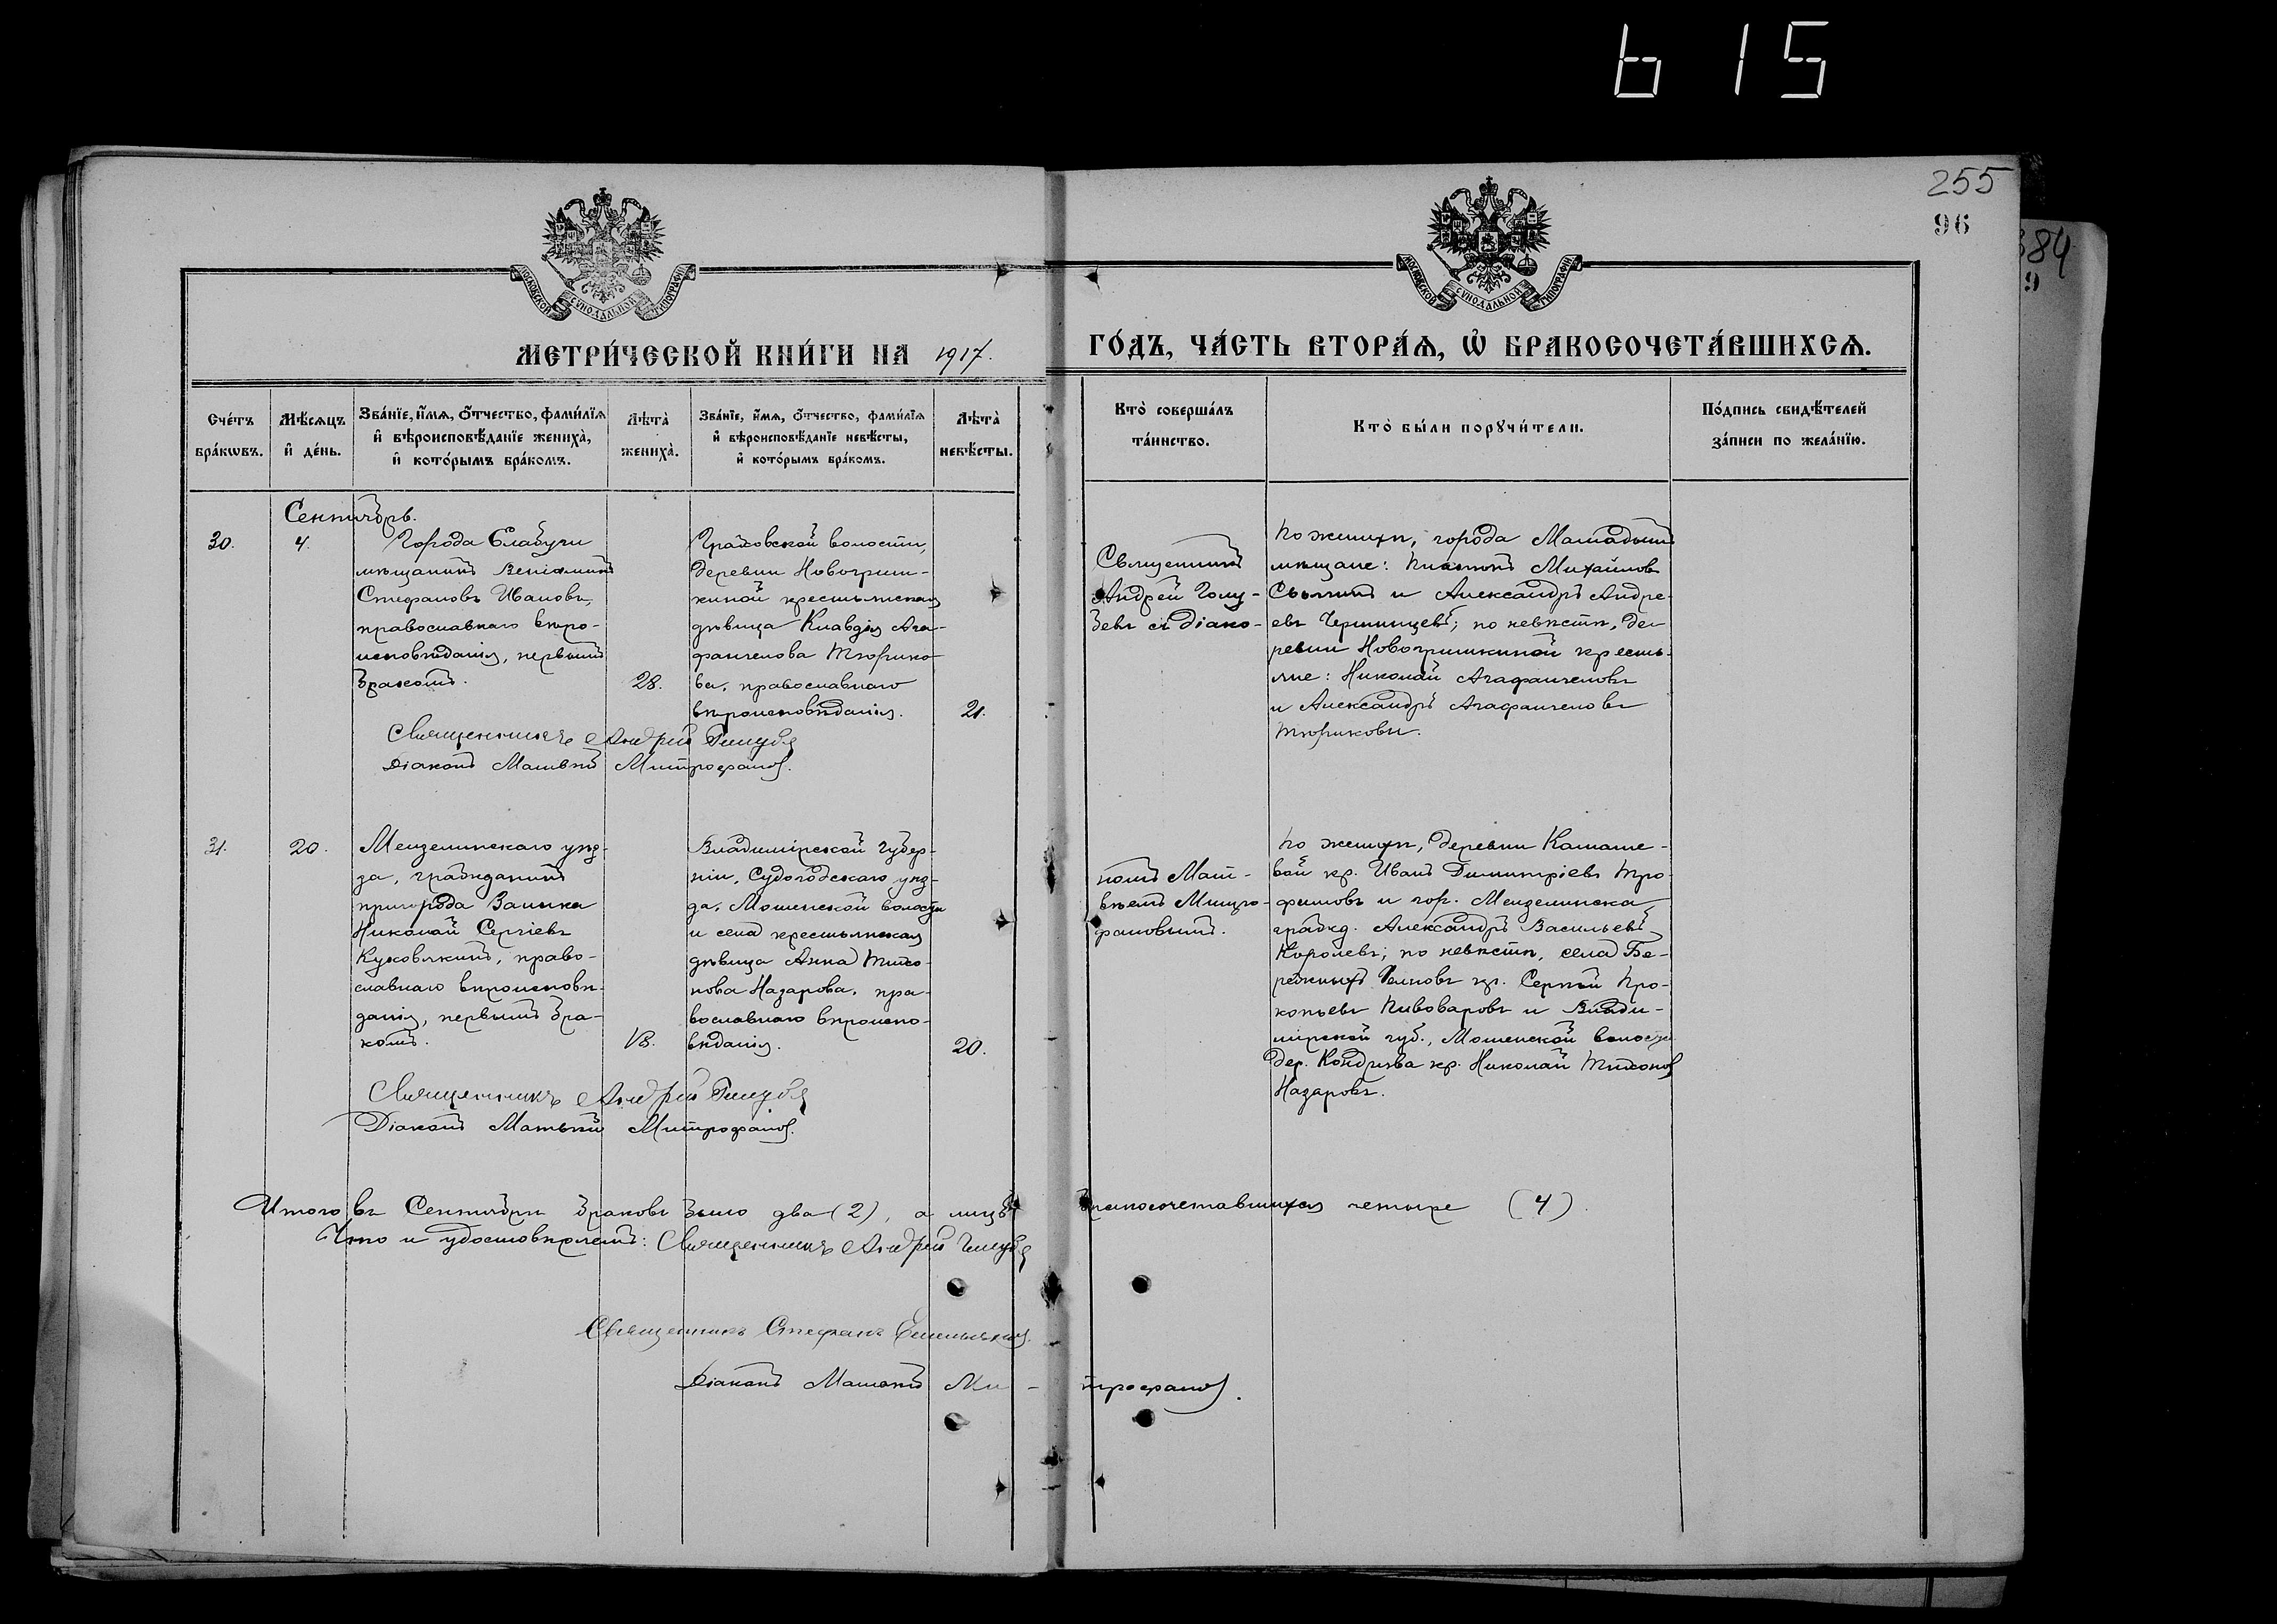 615
255
96
384
9
МОСКОВСКОЙ СѴНОДАЛЬНОЙ ТИПОГРАФІИ
МОСКОВСКОЙ СѴНОДАЛЬНОЙ ТИПОГРАФІИ
МЕТРИ́ЧЕСКОЙ КНИ́ГИ НА 1917.
ГО́ДЪ, ЧА́СТЬ ВТОРА́Ѧ, Ѡ҆ БРАКОСОЧЕТА́ВШИХСѦ.
Сче́тъ
бра́кѡвъ.
Мѣ́сяцъ
и҆ де́нь.
Зва́нїе, и҆́мѧ, ѻ҆́тчество, фами́лїѧ
и҆ вѣроисповѣ́данїе жениха̀,
и҆ кото́рымъ бра́комъ.
Лѣ́та̀
жениха̀.
Зва́нїе, и҆́мѧ, ѻ҆́тчество, фами́лїѧ
и҆ вѣроисповѣ́данїе невѣ́сты,
и҆ кото́рымъ бра́комъ.
Лѣ́та̀
невѣ́сты.
Кто̀ соверша́лъ
та́инство.
Кто̀ бы́ли порꙋчи́тели.
По́дпись свидѣ́телей
за́писи по жела́нїю.
Сентябрь.
30.
4.
Города Елабуги
мѣщанинъ Веніаминъ
Стефановъ Ивановъ,
православнаго вѣро-
исповѣданія, первымъ
бракомъ.
28.
Граховской волости,
деревни Новогриш-
киной крестьянская
дѣвица Клавдія Ага-
фангелова Тюрико-
ва, православнаго
вѣроисповѣданія.
21.
Священникъ Андрей Голубев
Діаконъ Матвѣй Митрофанов.
Священникъ
Андрей Голу-
бевъ съ діако-
По женихѣ, города Мамадыша
мѣщане: Платонъ Михайлов
и Александръ Андре-
евъ; по невѣстѣ, де
ревни Новогришкиной кресть-
яне: Николай Агафангеловъ
и Александръ Агафангеловъ
Тюриковы.
31.
20.
Мензелинскаго уѣз-
да, гражданинъ
пригорода Заинска
Николай Сергіевъ
Кузовлкинъ, право-
славнаго вѣроисповѣ-
данія, первымъ бра-
комъ.
18.
Владимірской губер-
ніи, Судогодскаго уѣз-
да, Мошенской волости
и села крестьянская
дѣвица Анна Тихо-
нова Назарова, пра-
вославнаго вѣроиспо-
вѣданія.
20.
Священникъ Андрей Голубев
Діаконъ Матвѣй Митрофанов.
номъ Мат-
вѣемъ Митро-
фановымъ.
По женихѣ, деревни Камаше-
вой кр. Иванъ Димитріевъ Тро-
фимовъ и гор. Мензелинска
гражд. Александръ Васильевъ
Королевъ; по невѣстѣ, села Бе-
режныхъ Челновъ кр. Сергѣй Про-
копьевъ Пивоваровъ и Влади-
мірской губ., Мошенской волости
дер. Кондряева кр. Николай Тихонов
Назаровъ.
Итого въ Сентябрѣ браковъ было два (2), а лицъ бракосочетавшихся четыре (4).
Что и удостовѣряемъ: Священникъ Андрей Голубев
Священникъ Стефанъ
Діаконъ Матвѣй Ми-трофанов.